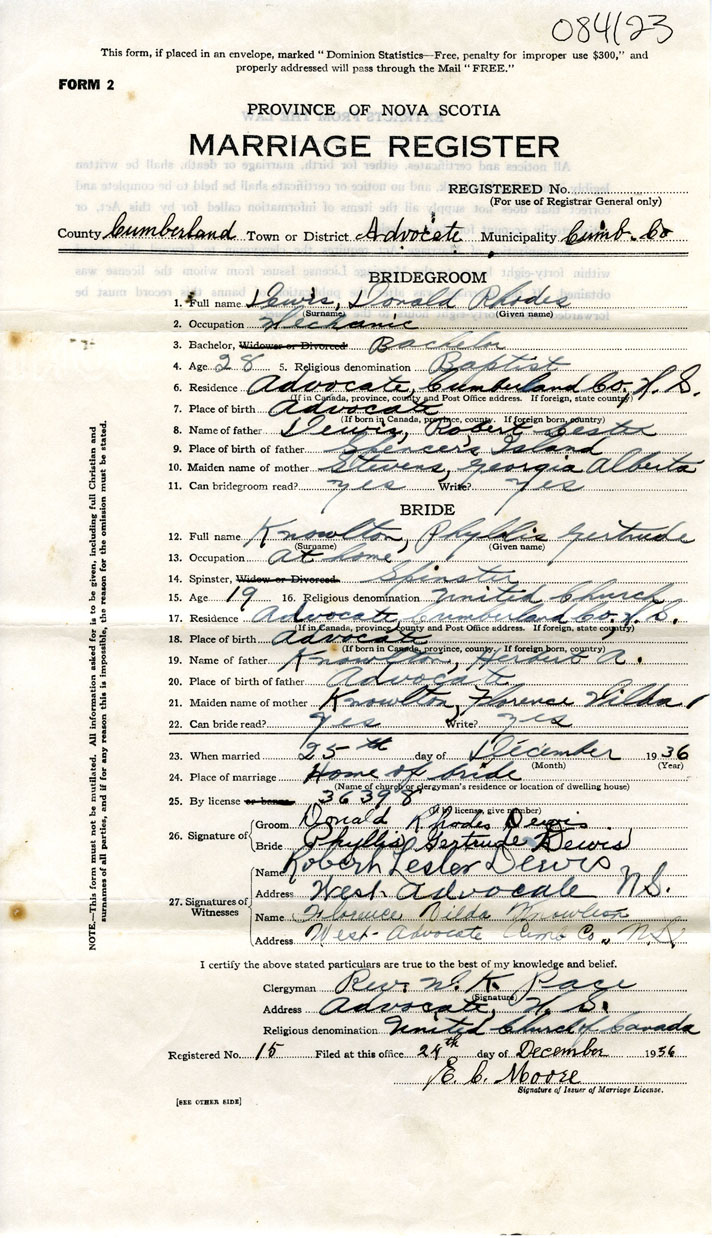 084123
This form, if placed in an envelope, marked "Dominion Statistics—Free, penalty for improper use $300," and
properly addressed will pass through the Mail "FREE."
FORM 2
PROVINCE OF NOVA SCOTIA
MARRIAGE REGISTER
REGISTERED No.
(For use of Registrar General only)
County Cumberland Town or District Advocate Municipality Cumb. Co
BRIDEGROOM
1. Full name Dewis, Donald Rhodes
(Surname) (Given name)
2. Occupation Mechanic
3. Bachelor, Widower or Divorced Bachelor
4. Age 28 5. Religious denomination Baptist
6. Residence Advocate, Cumberland Co. N. S.
(If in Canada, province, county and Post Office address. If foreign, state country)
7. Place of birth Advocate
(If born in Canada, province, county. If foreign born, country)
8. Name of father Dewis, Robert Lester
9. Place of birth of father Spencer's Island
10. Maiden name of mother Stevens, Georgia Alberta
11. Can bridegroom read? yes Write? yes
BRIDE
12. Full name Knowlton, Phyllis Gertrude
(Surname) (Given name)
13. Occupation at home
14. Spinster, Widow or Divorced. Spinster
15. Age 19 16. Religious denomination United Church
17. Residence Advocate, Cumberland Co. N. S.
(If in Canada, province, county and Post Office address. If foreign, state country)
18. Place of birth Advocate
(If born in Canada, province, county. If foreign born, country)
19. Name of father Knowlton, Herbert A.
20. Place of birth of father Advocate
21. Maiden name of mother Knowlton, Florence Vilda
22. Can bride read? yes Write? yes
23. When married 25th day of December 1936
(Month) (Year)
24. Place of marriage Home of bride
(Name of church or clergyman's residence or location of dwelling house)
25. By license or banns 36398
(If by license, give number)
26. Signature of
Groom Donald Rhodes Dewis
Bride Phyllis Gertrude Dewis
27. Signatures of Witnesses
Name Robert Lester Dewis
Address West Advocate N.S.
Name Florence Vilda Knowlton
Address West Advocate Cumb Co., N.S.
I certify the above stated particulars are true to the best of my knowledge and belief.
Clergyman Rev. W. K. Page
(Signature)
Address Advocate, N. S.
Religious denomination United Church of Canada
Registered No. 15 Filed at this office 29th day of December 1936
E. C. Moore
Signature of Issuer of Marriage License.
[SEE OTHER SIDE]
NOTE.—This form must not be mutilated. All information asked for is to be given, including full Christian and
surnames of all parties, and if for any reason this is impossible, the reason for the omission must be stated.